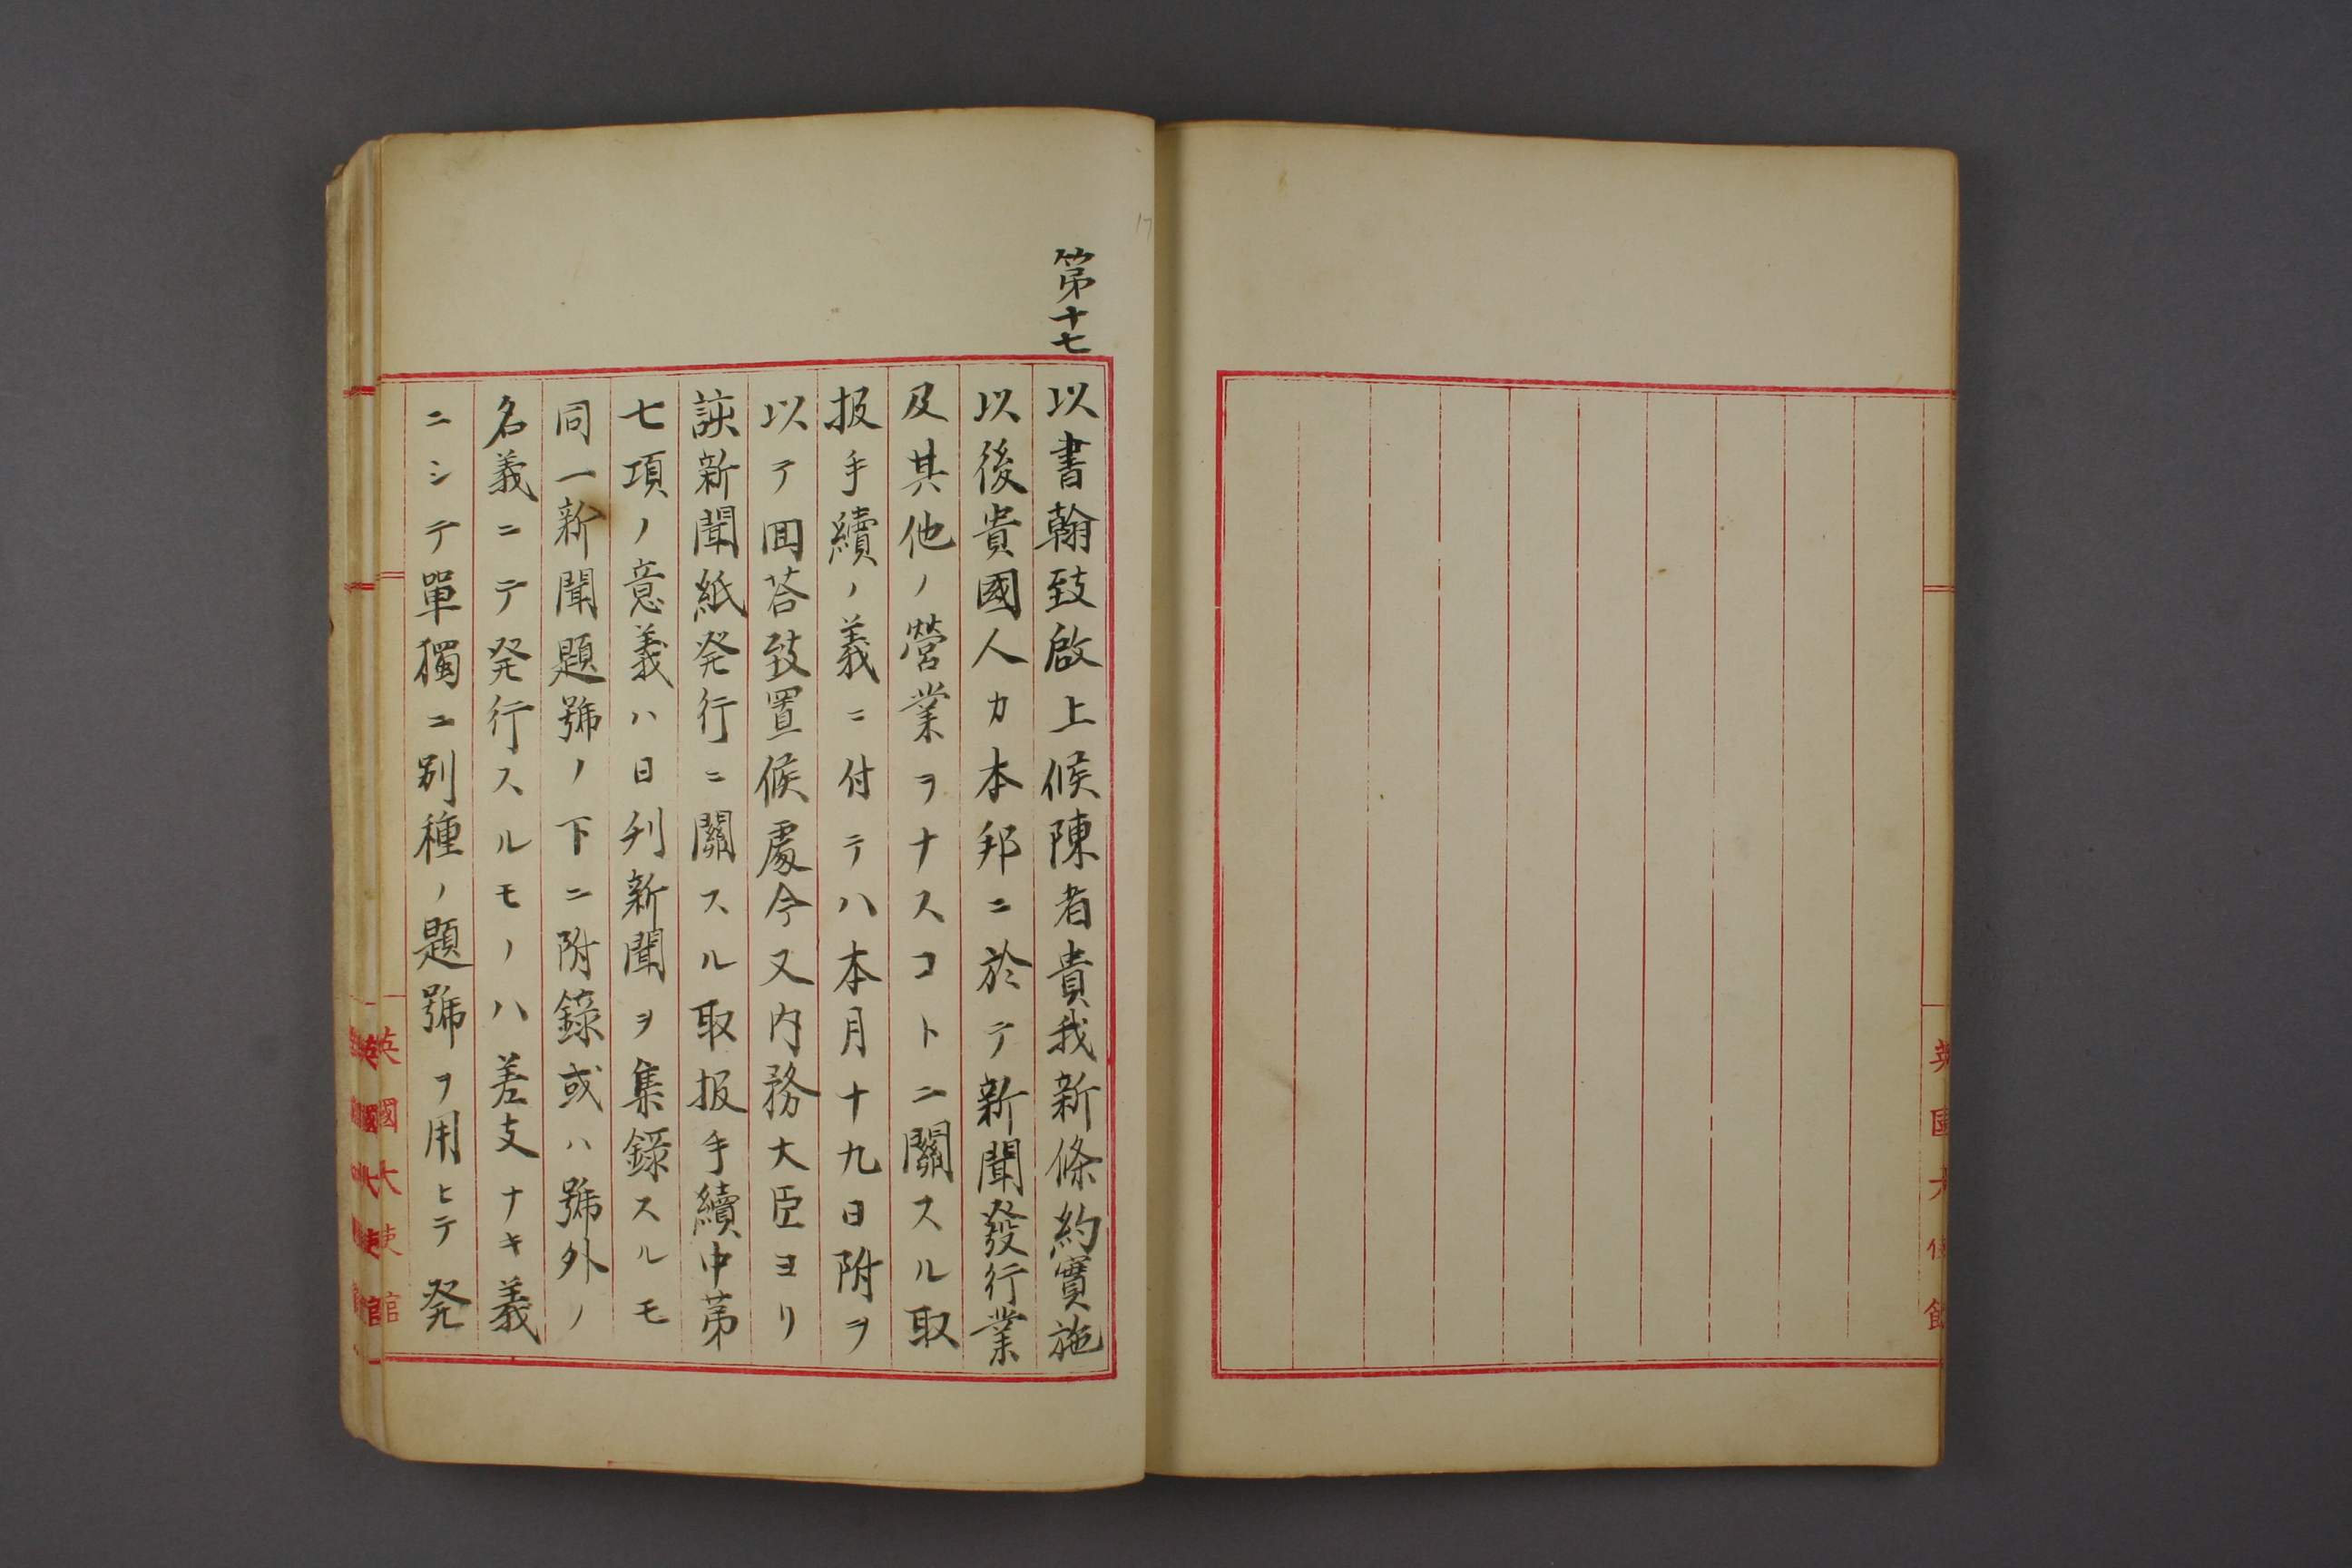 英國大使館
17
第十七
以書翰致啟上候陳者貴我新條約實施
以後貴國人カ本邦ニ於テ新聞發行業
及其他ノ營業ヲナスコトニ關スル取
扱手續ノ義ニ付テハ本月十九日附ヲ
以テ囬荅致置候處今又内務大臣ヨリ
該新聞紙発行ニ關スル取扱手續中第
七項ノ意義ハ日刋新聞ヲ集錄スルモ
同一新聞題號ノ下ニ附錄或ハ號外ノ
名義ニテ発行スルモノハ差支ナキ義
ニシテ單獨ニ別種ノ題號ヲ用ヒテ発
英國大使館